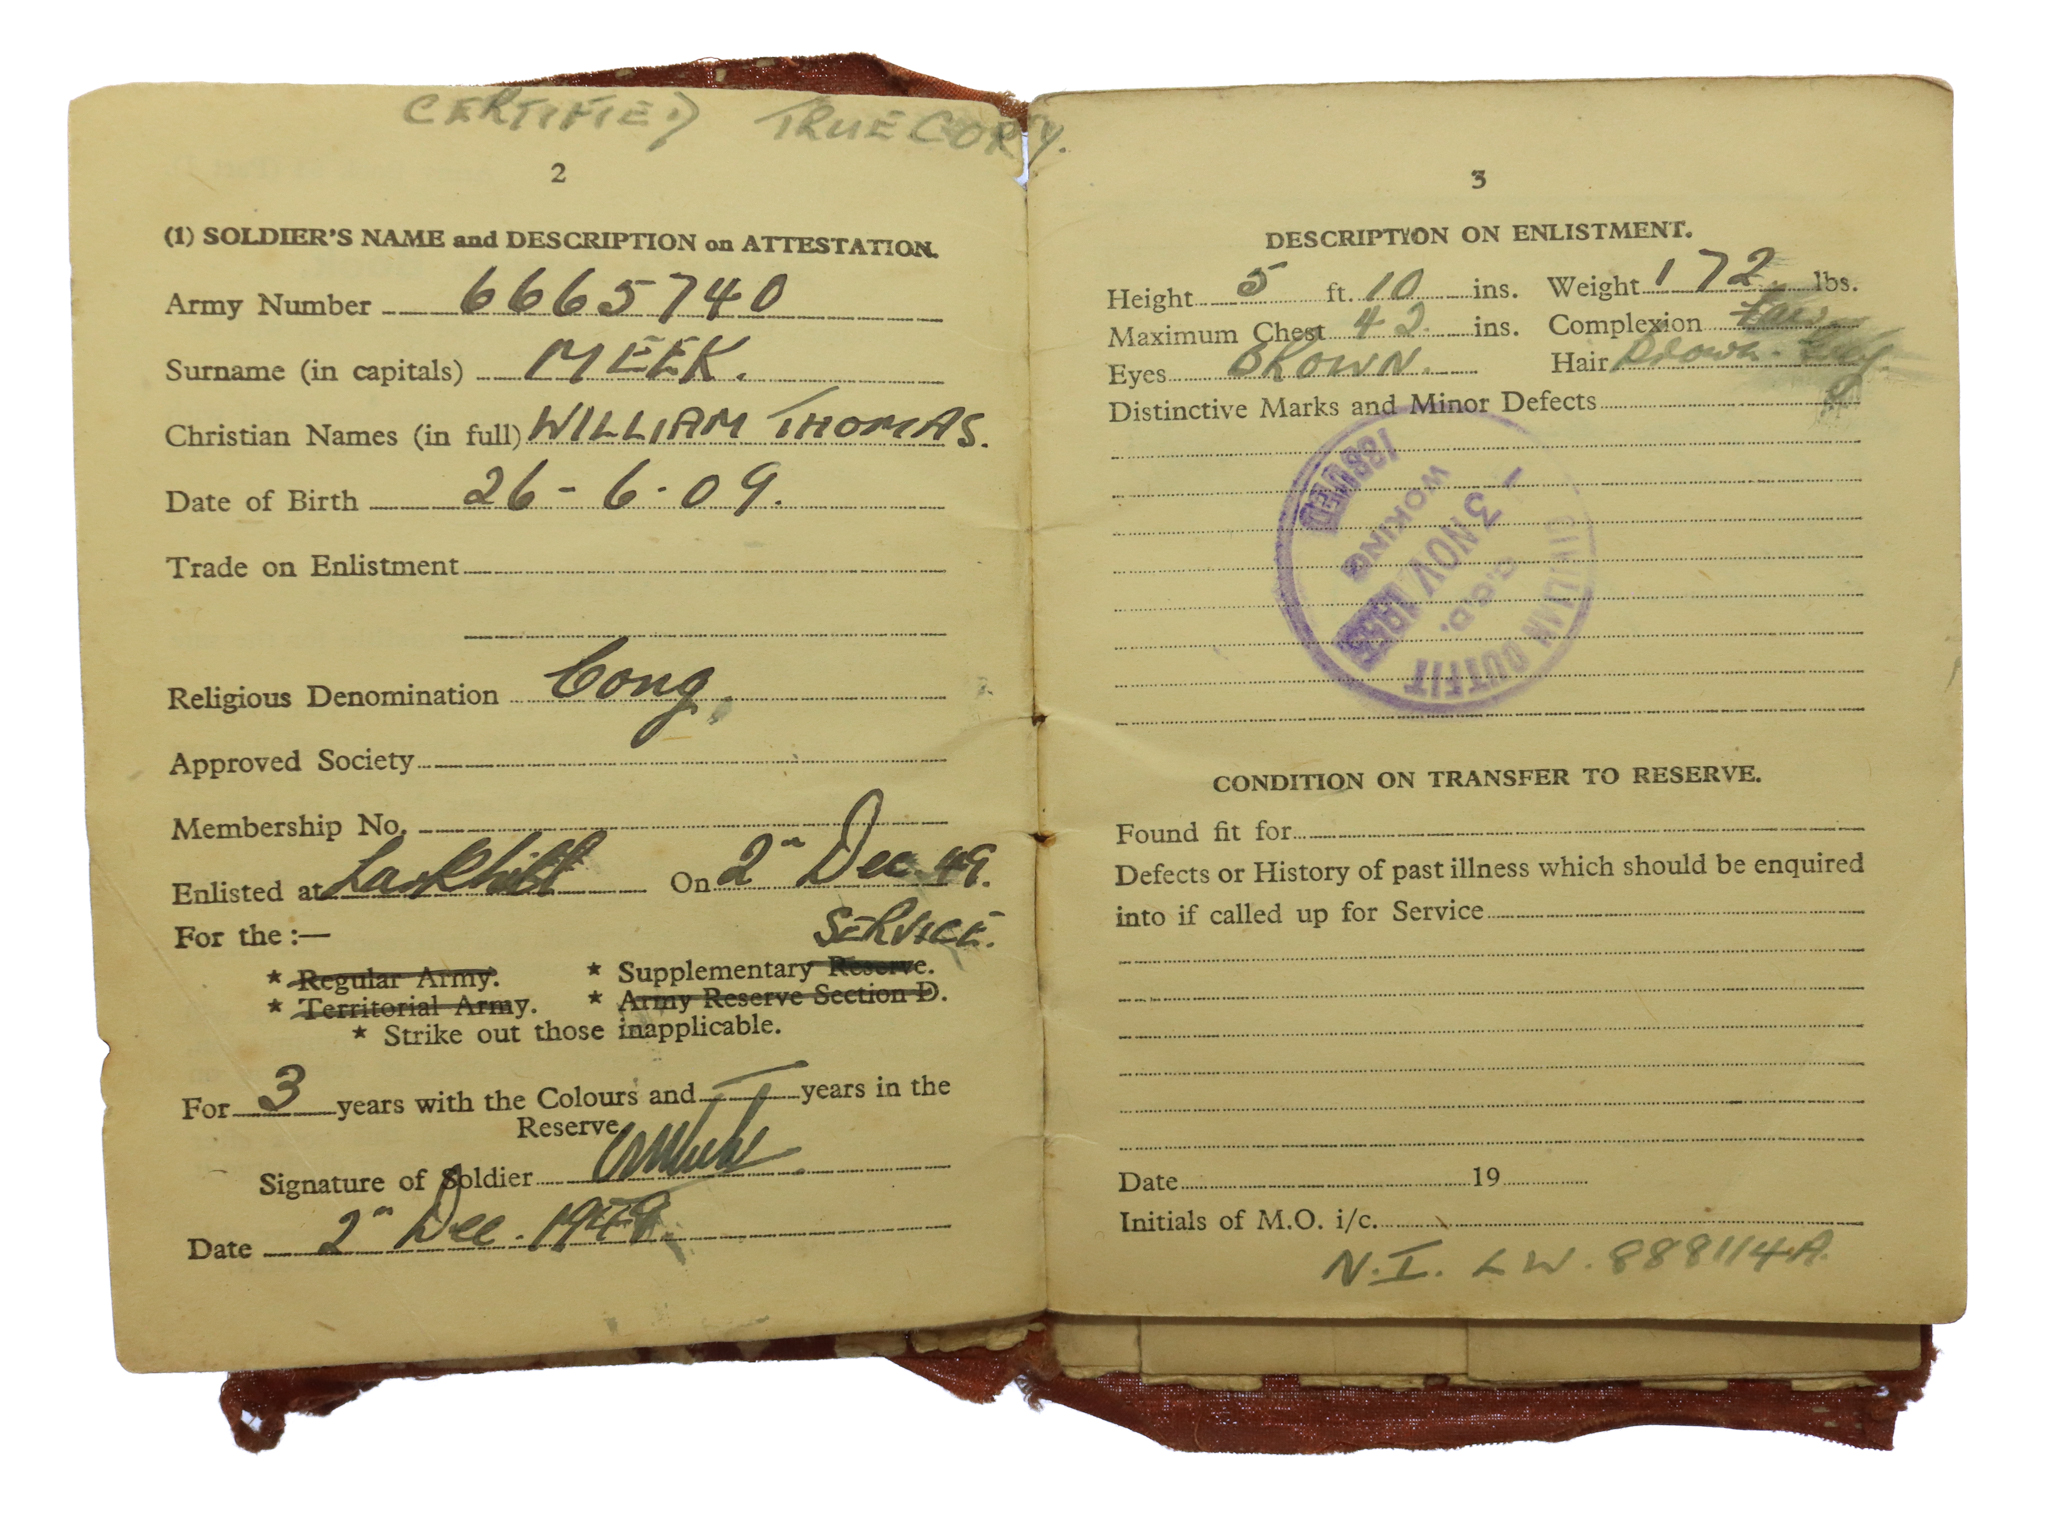 CERTIFIED TRUE COPY.
2
(1) SOLDIER'S NAME and DESCRIPTION on ATTESTATION.
Army Number 6665740
Surname (in capitals) MEEK.
Christian Names (in full) WILLIAM THOMAS.
Date of Birth 26-6-09.
Trade on Enlistment
Religious Denomination Cong.
Approved Society
Membership No.
Enlisted at Larkhill On 2nd Dec. 49.
For the :—
SERVICE.
* Regular Army. * Supplementary Reserve.
* Territorial Army. * Army Reserve Section D.
* Strike out those inapplicable.
For 3 years with the Colours and — years in the
Reserve
Signature of Soldier
Date 2nd Dec. 1949.
3
DESCRIPTION ON ENLISTMENT.
Height 5 ft. 10 ins. Weight 172 lbs.
Maximum Chest 42 ins. Complexion Fair
Eyes BROWN. Hair Brown.
Distinctive Marks and Minor Defects
CIVILIAN OUTFIT
C.O.D.
- 3 NOV
WOKING
ISSUED
CONDITION ON TRANSFER TO RESERVE.
Found fit for
Defects or History of past illness which should be enquired
into if called up for Service
Date 19
Initials of M.O. i/c.
N.I. LW. 888114A.